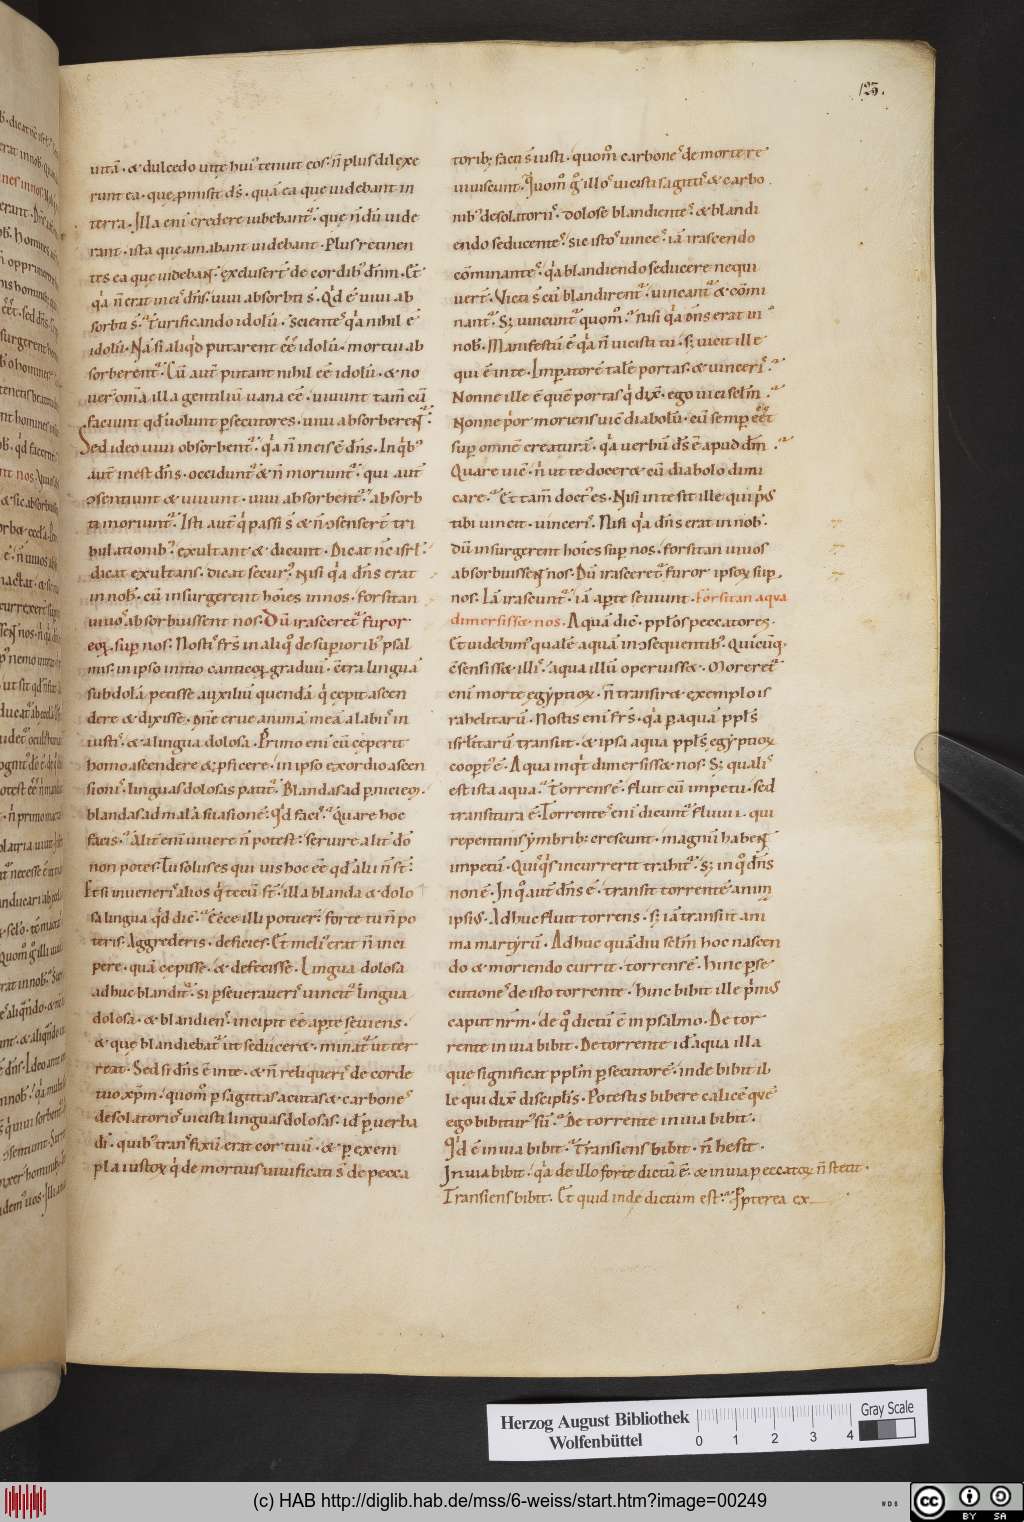 125.
uitā · & dulcedo uitę hui᷒ tenuit eos · n̄ plus dilexe
runt ea · que ꝓmisit dś · quā ea que uidebant in
terra · Illa eni credere iubebant᷑ · que n̄dū uide
rant · ista que amabant uidebant · Plus retinen
tes ea que
exclusert̄ de cordib᷒ dn̄m · Et
q̇a n̄ erat in ei᷒ dn̄s · uiui absorbti ś · Qd̄ ē uiui ab
sorbti ś · Turificando idolū · scientes q̇a nihil ē
idolū · Nā si aliqd̄ putarent ēē idolū · mortui ab
sorberent᷑ · Cū aut̄ putant nihil eē idolū · & no
uer̄ om̄a illa gentiliū uana eē · uiuunt tam̄ cū
faciunt qd̄ uolunt ꝑsecutores · uiui absorberen᷑ ·
Sed ideo uiui obsorbent᷑ · q̇a n̄ in eis ē dn̄s · In q̇b᷒
aut̄ inest dn̄s · occidunt᷑ & n̄ moriunt᷑ · qui aut̄
ɔsentiunt & uiuunt · uiui absorbent᷑ · absorb
ti moriunt᷑ · Isti aut̄ q̇ passi ś & n̄ ɔnsensert̄ tri
bulationib᷒ · exultant & dicunt · Dicat n̄c isrl̄ ·
dicat exultans · dicat secur᷒ · Nisi q̇a dn̄s erat
in nob̄ · cū insurgerent hoīes in nos · forsitan
uiuos absorbuissent nos · Dū irasceret᷑ furor
eoꝝ sup nos · Nostis frs̄ in aliq̊ de supioriɓ psal
mis · in ipso initio canticoꝝ graduū · cētra linguā
subdolā petisse auxiliū quendā q̇ cepit ascen
dere & dixisse · Dn̄e erue animā meā a labiis in
iustis · & a lingua dolosa · Primo eni cū ceperit
homo ascendere & ꝓficere · in ipso exordio ascen
sionis · linguas dolosas patit᷑ · Blandas ad ꝑniciem ·
blandas ad malā suasionē · Qd̄ facis · quare hoc
facis · Alit̄ eni uiuere n̄ potest · seruire alit̄ dō
non potes · Tu solus es qui uis hoc eē qd̄ alii n̄ st̄ ·
Et si inueneris alios q̇ tecū st̄ · illa blanda & dolo
sa lingua qd̄ dic̄ · Ecce illi potuer̄ · forte tu n̄ po
teris · Aggrederis · deficies · Et meli᷒ erat n̄ inci
pere · quā cepisse · & defecisse · Lingua dolosa
adhuc blandit᷑ · si ꝑseueraueris uincit᷑ lingua
dolosa · & blandiens · incipit eē apte seuiens ·
& que blandiebat᷑ ut seducer& · minat᷑ ut ter
reat · Sed si dn̄s ē in te · & n̄ reliqueris de corde
tuo xp̄m · quom̄ ꝑ sagittas acutas & carbones
desolatorios uicisti linguas dolosas · id̄ ꝑ uerba
dī · quib᷒ transfixū erat cor tuū · & ꝑ exem
pla iustoꝝ q̇ de mortuis uiuificati ś de pecca
torib᷒ facti ś iusti · quom̄ carbones de morte re
uiuiscunt · Quom̄ gͦ illos uicisti sagittis & carbo
nib᷒ desolatoriis · dolose blandientes · & blandi
endo seducentes · sic istos uinces · iā irascendo
cōminantes · q̇a blandiendo seducere nequi
uert̄ · Victi ś cū blandirent᷑ · uincant᷑ & cōmi
nant᷑ · Sꝫ uincunt᷑ quom̄ · nisi q̇a dn̄s erat in
nob̄ · Manifestū ē q̇a n̄ uicisti tu · sꝫ uicit ille
qui ē in te · Imperatorē talē portas · & uinceris ·
Nonne ille ē que portas q̇ dix̄ · ego uici selm̄ ·
Nonne p̄or moriens uic̄ diabolū · cū semp eēt
sup omnē creaturā · q̇a uerbū dś ē apud dm̄ ·
Quare uic̄ · n̄ ut te docer& cū diabolo dimi
care · Et tam̄ doct᷒ es · Nisi in te sit ille qui p᷒s
tibi uincit · uinceris · Nisi q̇a dn̄s erat in nob̄ ·
dū insurgerent hoīes sup nos · forsitan uiuos
absorbuissen᷑ nos · Dū irasceret᷑ furor ipsoꝝ sup
nos · Iā irascunt᷑ · iā apte seuiunt · Forsitan aqua
dimersiss& nos · Aquā dic̄ · pplos peccatores ·
Et uidebim᷒ qualē aquā in ɔsequentib᷒ · Quicūq̨
ɔsensiss& illis · aqua illū operuiss& · Moreret᷑
eni morte egyptioꝝ · n̄ transir& exemplo is
rahelitarū · Nostis eni frs̄ · q̇a ꝑ aquā ppls̄
isrl̄itarū transiit · & ipsa aqua ppls̄ egyptioꝝ
coopt᷒ ē · Aqua inq̇t dimersiss& nos · Sꝫ qualis
est ista aqua · Torrens ē · fluit cū impetu · sed
transitura ē · Torrentes eni dicunt᷑ fluuii · qui
repentinis ymbrib᷒ crescunt · magnū haben᷑
impetū · Quisq̇s incurrerit trahit᷑ · Sꝫ in q̊ dn̄s
non ē · In q̊ aut̄ dn̄s ē · transit torrentē anima
ipsi᷒ · Adhuc fluit torrens · sꝫ iā transiit ani
ma martyrū · Adhuc quādiu selm̄ hoc nascen
do & moriendo currit · torrens ē · hinc ꝑse
cutiones de isto torrente · hinc bibit ille p̄mus
caput nrm̄ · de q̊ dictū ē in psalmo · De tor
rente in uia bibit · De torrente id̄ aqua illa
que significat pplm̄ ꝑsecutorē · inde bibit il
le qui dix̄ disciplis̄ · Potestis bibere calicē quē
ego bibitur᷒ sū · De torrente in uia bibit ·
Qd̄ ē in uia bibit · Transiens bibit · n̄ hesit ·
In uia bibit · q̇a de illo forte dictū ē · & in uia peccatoꝝ n̄ stetit ·
Transiens bibit · Et quid inde dictum est · Ppterea ex
Herzog August Bibliothek
Wolfenbüttel
0 1 2 3 4
Gray Scale
(c) HAB http://diglib.hab.de/mss/6-weiss/start.htm?image=00249
WDB
cc BY SA